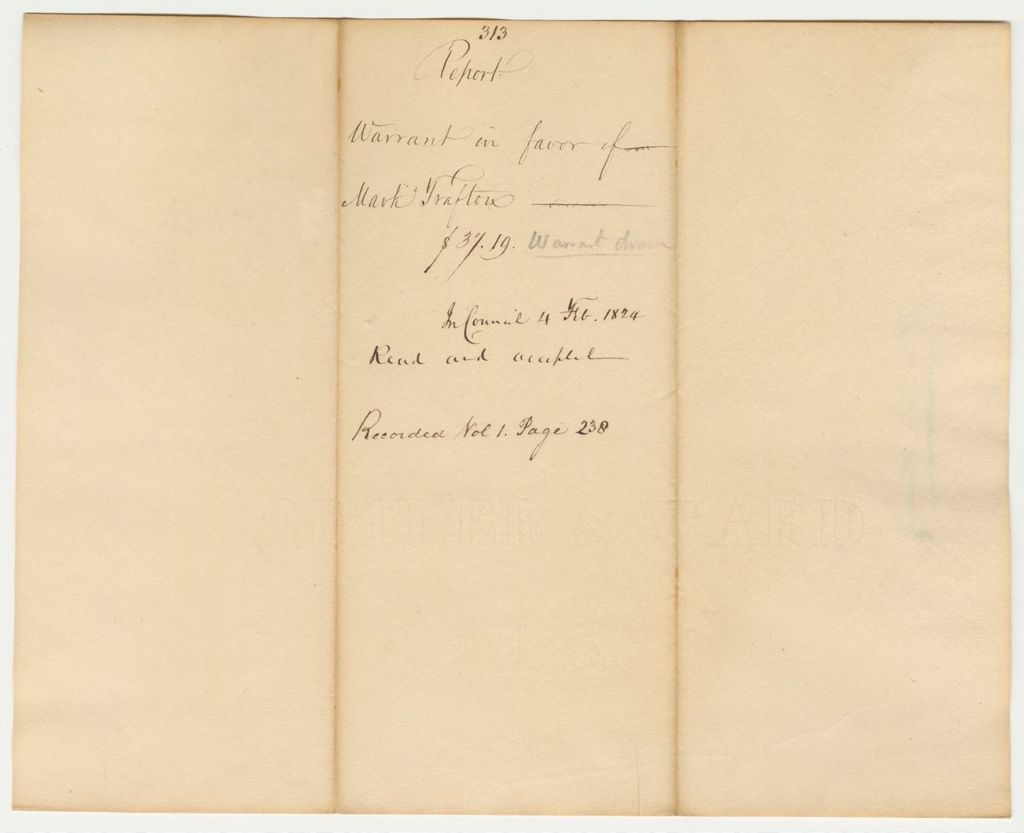 313
Report
Warrant in favor of
Mark Trafton
$ 37.19. Warrant drawn
In Council 4 Feb. 1824
Read and accepted
Recorded Vol 1. Page 238